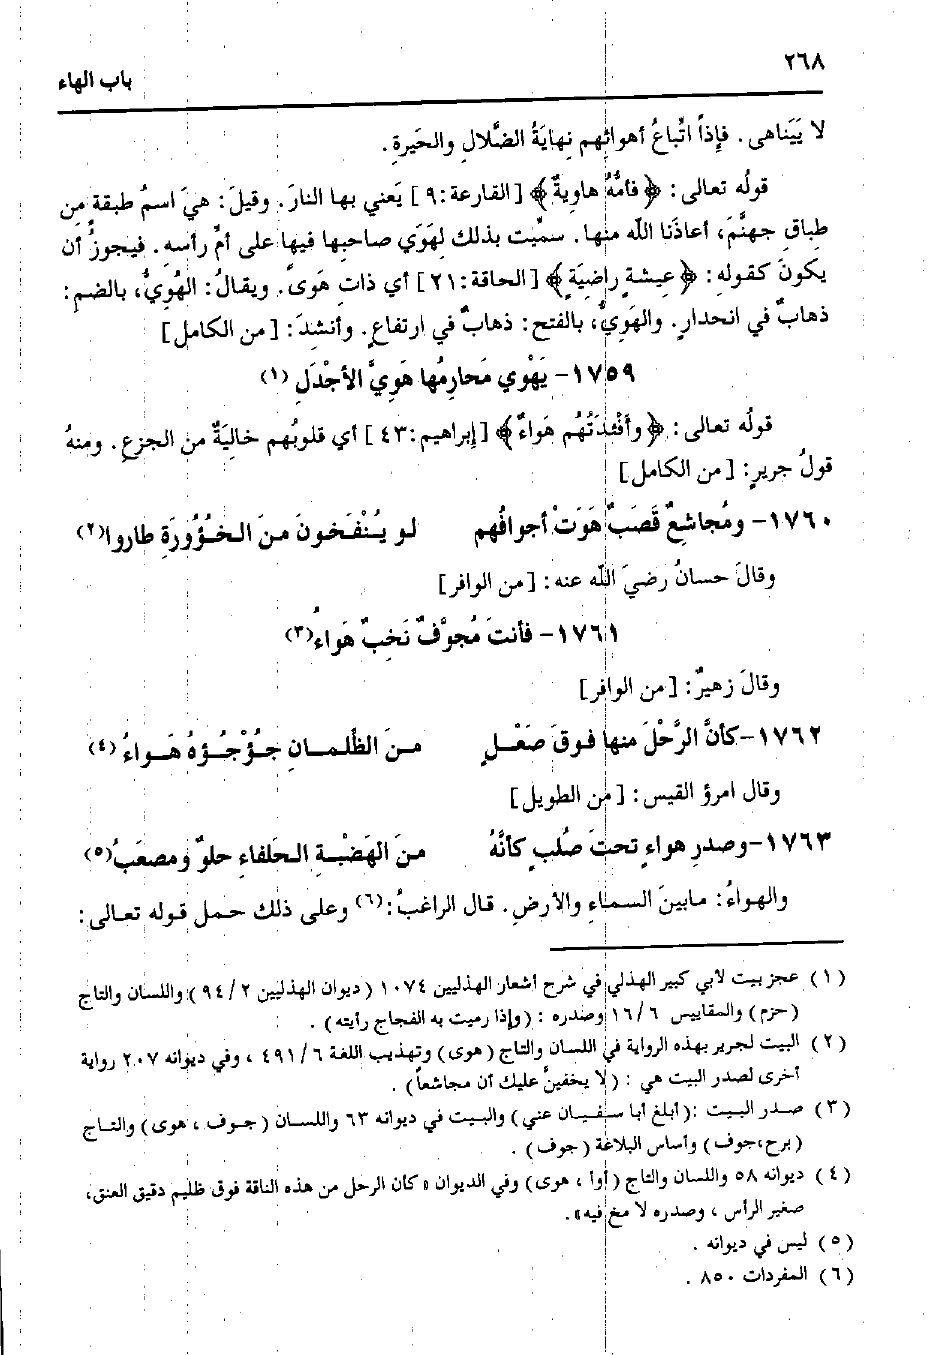 ٢٦٨
باب الهاء
لا يَتَناهى. فإِذاً اتِّباعُ أهوائِهم نِهايَةُ الضَّلالِ والحَيرةِ.
قولُه تعالى: ﴿فأمُّهُ هاويةٌ﴾ [القارعة:٩] يَعني بها النارَ. وقيلَ: هيَ اسمُ طبقةٍ مِن
طباقِ جهنَّمَ، أعاذَنا اللّه منها. سمِّيت بذلك لِهَوَي صاحبِها فيها على أمِّ رأسه. فيجوزُ أن
يكونَ كقولهِ: ﴿عِيشةٍ راضِيَةٍ﴾ [الحاقة:٢١] أي ذاتِ هَوىً. ويقالُ: الهُوِيُّ، بالضمِ:
ذهابٌ في انحدارٍ. والهَوِيُّ، بالفتح: ذهابٌ في ارتفاعٍ. وأنشدَ: [من الكامل]
١٧٥٩- يَهْوي مَحارِمُها هَوِيَّ الأجْدَلِ (١)
قولُه تعالى: ﴿وأَفْئِدَتُهُم هَواءٌ﴾ [إبراهيم:٤٣] أي قلوبُهم خاليَةٌ من الجزعِ. ومنهُ
قولُ جريرٍ: [من الكامل]
١٧٦٠- ومُجاشعٌ قَصَبٌ هَوَتْ أجوافُهم لو يُنْفَخونَ منَ الخُؤُورَةِ طاروا(٢)
وقالَ حسانُ رضيَ اللّه عنه: [من الوافر]
١٧٦١- فأنتَ مُجوَّفٌ نَخِبٌ هَواءُ(٣)
وقالَ زهيرٌ: [من الوافر]
١٧٦٢-كأنَّ الرَّحْلَ منها فوقَ صَعْلٍ منَ الظِّلمانِ جُؤْجُؤهُ هَواءُ (٤)
وقال امرؤ القيس: [من الطويل]
١٧٦٣-وصدرِ هواءٍ تحتَ صُلبٍ كأنَّهُ منَ الهَضْبةِ الحَلفاءِ حلوٌ ومصعَبُ(٥)
والهواءُ: مابينَ السماءِ والأرضِ. قال الراغبُ:(٦) وعلى ذلك حمل قوله تعالى:
(١) عجز بيت لأبي كبير الهذلي في شرح أشعار الهذليين ١٠٧٤ (ديوان الهذليين ٩٤/٢) واللسان والتاج
(حزم) والمقاييس ١٦/٦ وصدره : (وإذا رميت به الفجاج رأيته) .
(٢) البيت لجرير بهذه الرواية في اللسان والتاج (هوى) وتهذيب اللغة ٤٩١/٦ ، وفي ديوانه ٢٠٧ رواية
أخرى لصدر البيت هي : (لا يخفينَّ عليك أن مجاشعاً) .
(٣) صدر البيت :(أبلغ أبا سفيان عني) والبيت في ديوانه ٦٣ واللسان (جوف ، هوى) والتاج
(برح،جوف) وأساس البلاغة (جوف) .
(٤) ديوانه ٥٨ واللسان والتاج (أوأ ، هوى) وفي الديوان «كأن الرحل من هذه الناقة فوق ظليم دقيق العنق،
صغير الرأس ، وصدره لا مخ فيه».
(٥) ليس في ديوانه .
(٦) المفردات ٨٥٠ .